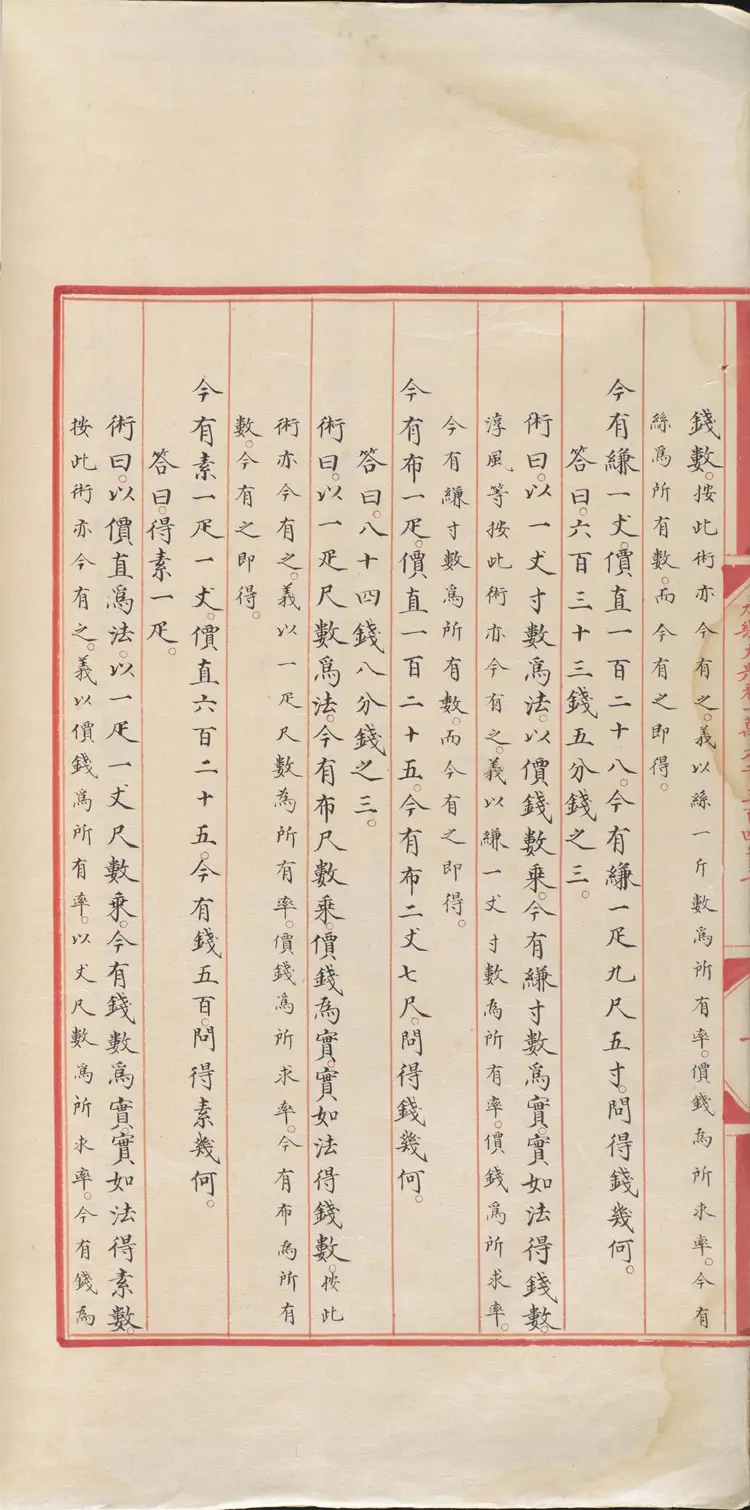 錢數。按此術亦今有之。義以絲一斤數為所有率。價錢為所求率。今有
絲爲所有數。而今有之即得。
今有縑一丈。價直一百二十八。今有縑一疋九尺五寸。問得錢幾何。
答曰。六百三十三錢五分錢之三。
術曰。以一丈寸數爲法。以價錢數乘。今有縑寸數爲實。實如法得錢數。
淳風等按此術亦今有之。義以縑一丈寸數為所有率。價錢爲所求率。
今有縑寸數爲所有數。而今有之即得。
今有布一疋。價直一百二十五。今有布二丈七尺。問得錢幾何。
答曰。八十四錢八分錢之三。
術曰。以一疋尺數爲法。今有布尺數乘。價錢為實。實如法得錢數。按此
術亦今有之。義以一疋尺數為所有率。價錢爲所求率。今有布為所有
數。今有之即得。
今有素一疋一丈。價直六百二十五。今有錢五百。問得素幾何。
答曰。得素一疋。
術曰。以價直爲法。以一疋一丈尺數乘。今有錢數爲實。實如法得素數。
按此術亦今有之。義以價錢爲所有率。以丈尺數爲所求率。今有錢為